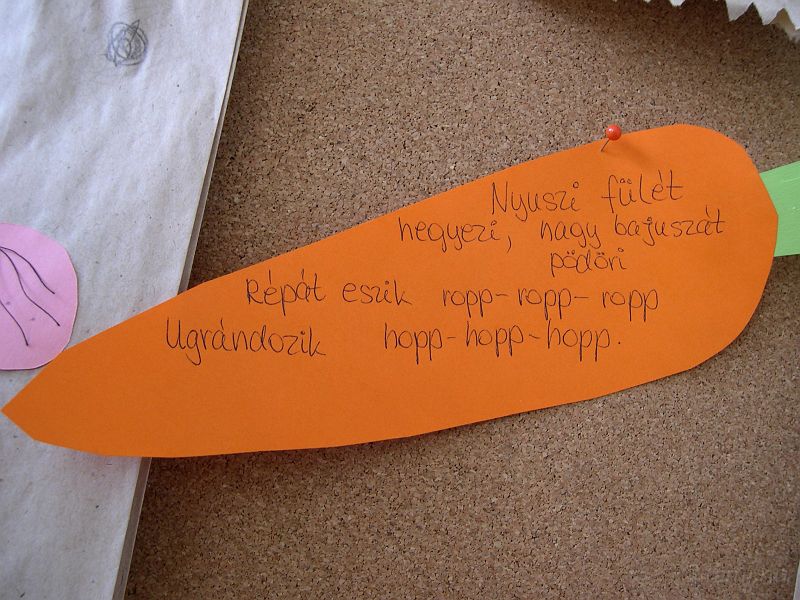 Nyuszi fülét
hegyezi, nagy bajuszát
pödöri
Répát eszik ropp-ropp-ropp
Ugrándozik hopp-hopp-hopp.